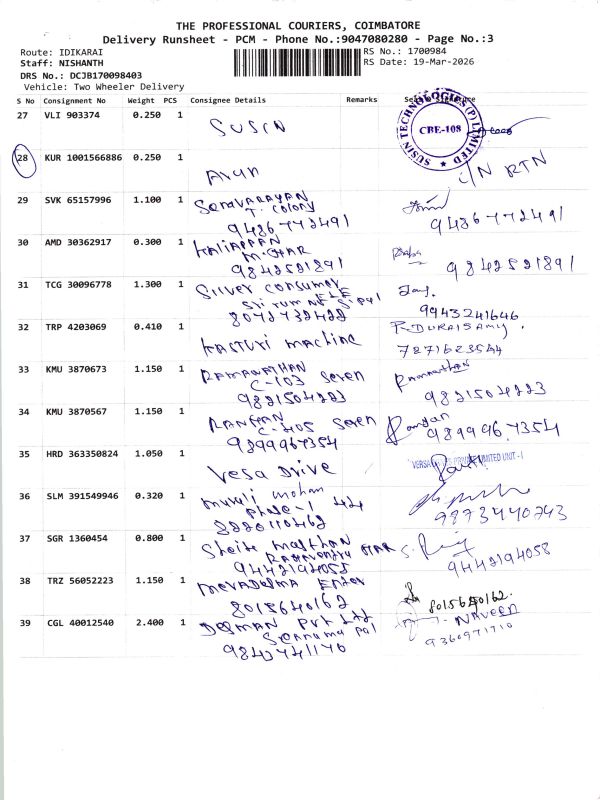 THE PROFESSIONAL COURIERS, COIMBATORE
Delivery Runsheet - PCM - Phone No.:9047080280 - Page No.:3
Route: IDIKARAI
RS No.: 1700984
Staff: NISHANTH
RS Date: 19-Mar-2026
DRS No.: DCJB170098403
Vehicle: Two Wheeler Delivery
S No Consignment No Weight PCS Consignee Details Remarks
27 VLI 903374 0.250 1 SUSIN
SUSIN TECHNOLOGIES (P) LIMITED
CBE-108
28 KUR 1001566886 0.250 1 Arun
I/N RTN
29 SVK 65157996 1.100 1
T. Colony
9486772491
9486772491
30 AMD 30362917 0.300 1 KALIAPPAN
9842521891
9842521891
31 TCG 30096778 1.300 1 Silver Consumer
9943241646
32 TRP 4203069 0.410 1 Kasturi machine
R. DURAISAMY.
33 KMU 3870673 1.150 1 RAMANATHAN
C-103 Seven
Ramanathan
9821504223
34 KMU 3870567 1.150 1
C-405 Seven
9899967354
9899967354
35 HRD 363350824 1.050 1 Vesa Drive
LIMITED UNIT - I
36 SLM 391549946 0.320 1 Murali mohan
phase-1
8220110462
37 SGR 1360454 0.800 1
9442194055
38 TRZ 56052223 1.150 1
8015640162
39 CGL 40012540 2.400 1
PVT Ltd
NAVEEN